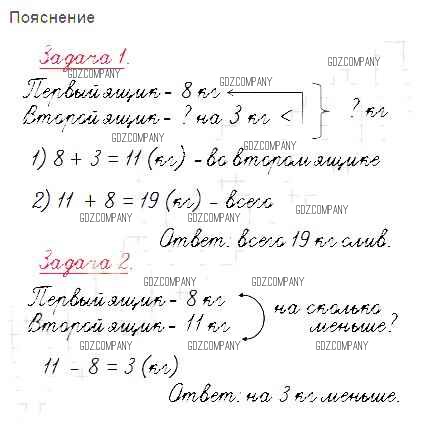 Пояснение
Задача 1.
GDZCOMPANY
Первый ящик - 8 кг
GDZCOMPANY
GDZCOMPANY
Второй ящик - ? на 3 кг < } ? кг
GDZCOMPANY
GDZCOMPANY
1) 8 + 3 = 11 (кг) - во втором ящике
2) 11 + 8 = 19 (кг) - всего
GDZCOMPANY
GDZCOMPANY
GDZCOMPANY
Ответ: всего 19 кг слив.
Задача 2.
GDZCOMPANY
GDZCOMPANY
GDZCOMPANY
Первый ящик - 8 кг
Второй ящик - 11 кг
на сколько
меньше?
GDZCOMPANY
GDZCOMPANY
GDZCOMPANY
11 - 8 = 3 (кг)
Ответ: на 3 кг меньше.